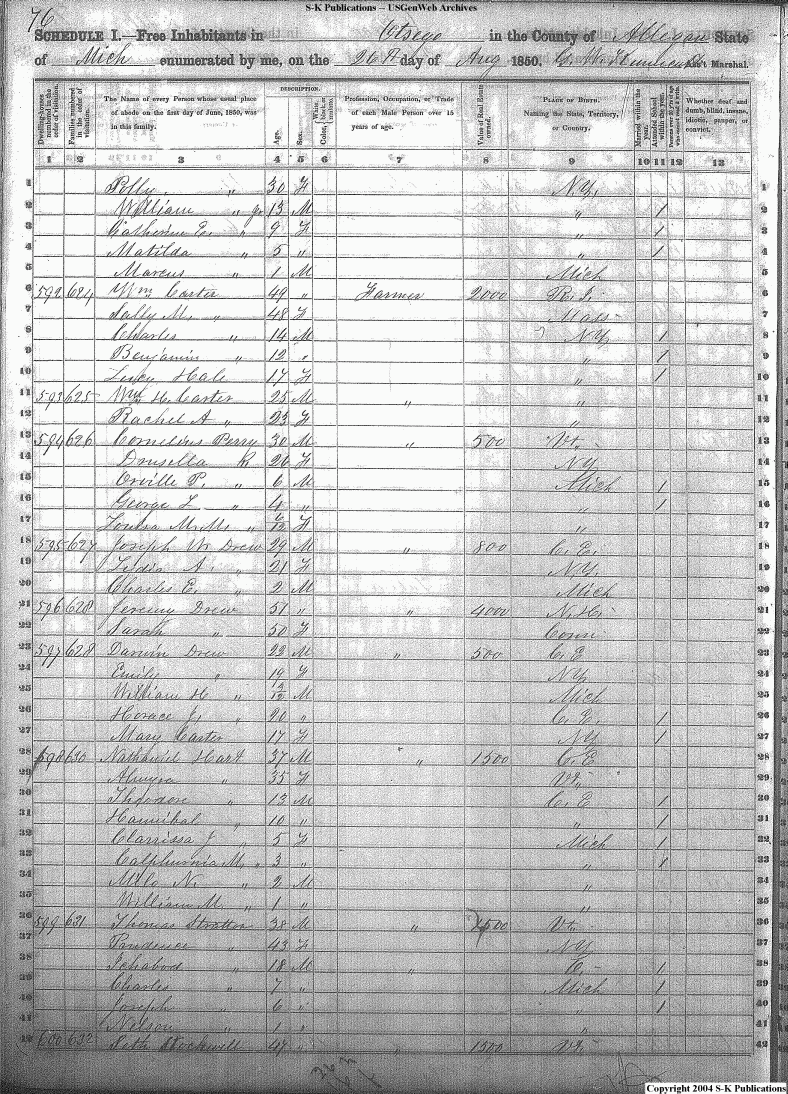 S-K Publications -- USGenWeb Archives
76
SCHEDULE I.—Free Inhabitants in Otsego in the County of Allegan State
of Mich enumerated by me, on the 26th day of Aug 1850. G. W. Ass't Marshal.
Dwelling-houses numbered in the order of visitation.
Families numbered in the order of visitation.
The Name of every Person whose usual place of abode on the first day of June, 1850, was in this family.
DESCRIPTION.
Age.
Sex.
Color, White, black, or mulatto.
Profession, Occupation, or Trade of each Male Person over 15 years of age.
Value of Real Estate owned.
PLACE OF BIRTH. Naming the State, Territory, or Country.
Married within the year.
Attended School within the year.
Persons over 20 y'rs of age who cannot read & write.
Whether deaf and dumb, blind, insane, idiotic, pauper, or convict.
1 2 3 4 5 6 7 8 9 10 11 12 13
1 Polly " 30 F N.Y. 1
2 William " Jr 13 M " 1 2
3 Catherine E. " 9 F " 1 3
4 Matilda " 5 " " 1 4
5 Marcus " 1 M Mich 5
6 592 624 Wm Carter 49 " Farmer 2000 R.I. 6
7 Sally M. " 48 F Mass 7
8 Charles " 14 M N.Y. 1 8
9 Benjamin " 12 " " 1 9
10 Lucy Hale 17 F " 1 10
11 593 625 Wm H. Carter 25 M " " 11
12 Rachel A " 23 F " 12
13 594 626 Cornelius Perry 30 M " 500 Vt. 13
14 Drusella R 26 F N.Y. 14
15 Orville P. " 6 M Mich 1 15
16 George L " 4 " " 1 16
17 Louisa M. " 6/12 F " 17
18 595 627 Joseph W. Drew 29 M " 800 C.E. 18
19 Lidia A. " 21 F N.Y. 19
20 Charles E. " 2 M Mich 20
21 596 628 Jeremy Drew 51 " " 4000 N.H. 21
22 Sarah " 50 F Conn 22
23 597 628 Darwin Drew 22 M " 500 C.E. 23
24 Emily " 19 F N.Y. 24
25 William H " 3/12 M Mich 25
26 Horace J. " 20 " C.E. 1 26
27 Mary Carter 17 F N.Y. 1 27
28 598 630 Nathaniel Hart 37 M " 1500 C.E. 28
29 Almyra " 35 F Vt. 29
30 Theodore " 13 M C.E. 1 30
31 Hannibal " 10 " " 1 31
32 Clarrissa J. " 5 F Mich 1 32
33 Calphurnia M. " 3 " " 1 33
34 Milo N. " 2 M " 34
35 William M. " 1 " " 35
36 599 631 Thomas Stratton 38 M " 500 Vt. 36
37 Prudence " 43 F N.Y. 37
38 Ichabod " 18 M 1 38
39 Charles " 7 " Mich 1 39
40 Joseph " 6 " " 1 40
41 Nelson " 1 " " 41
42 600 632 Seth Stockwell 47 " " 1500 Vt. 42
Copyright 2004 S-K Publications